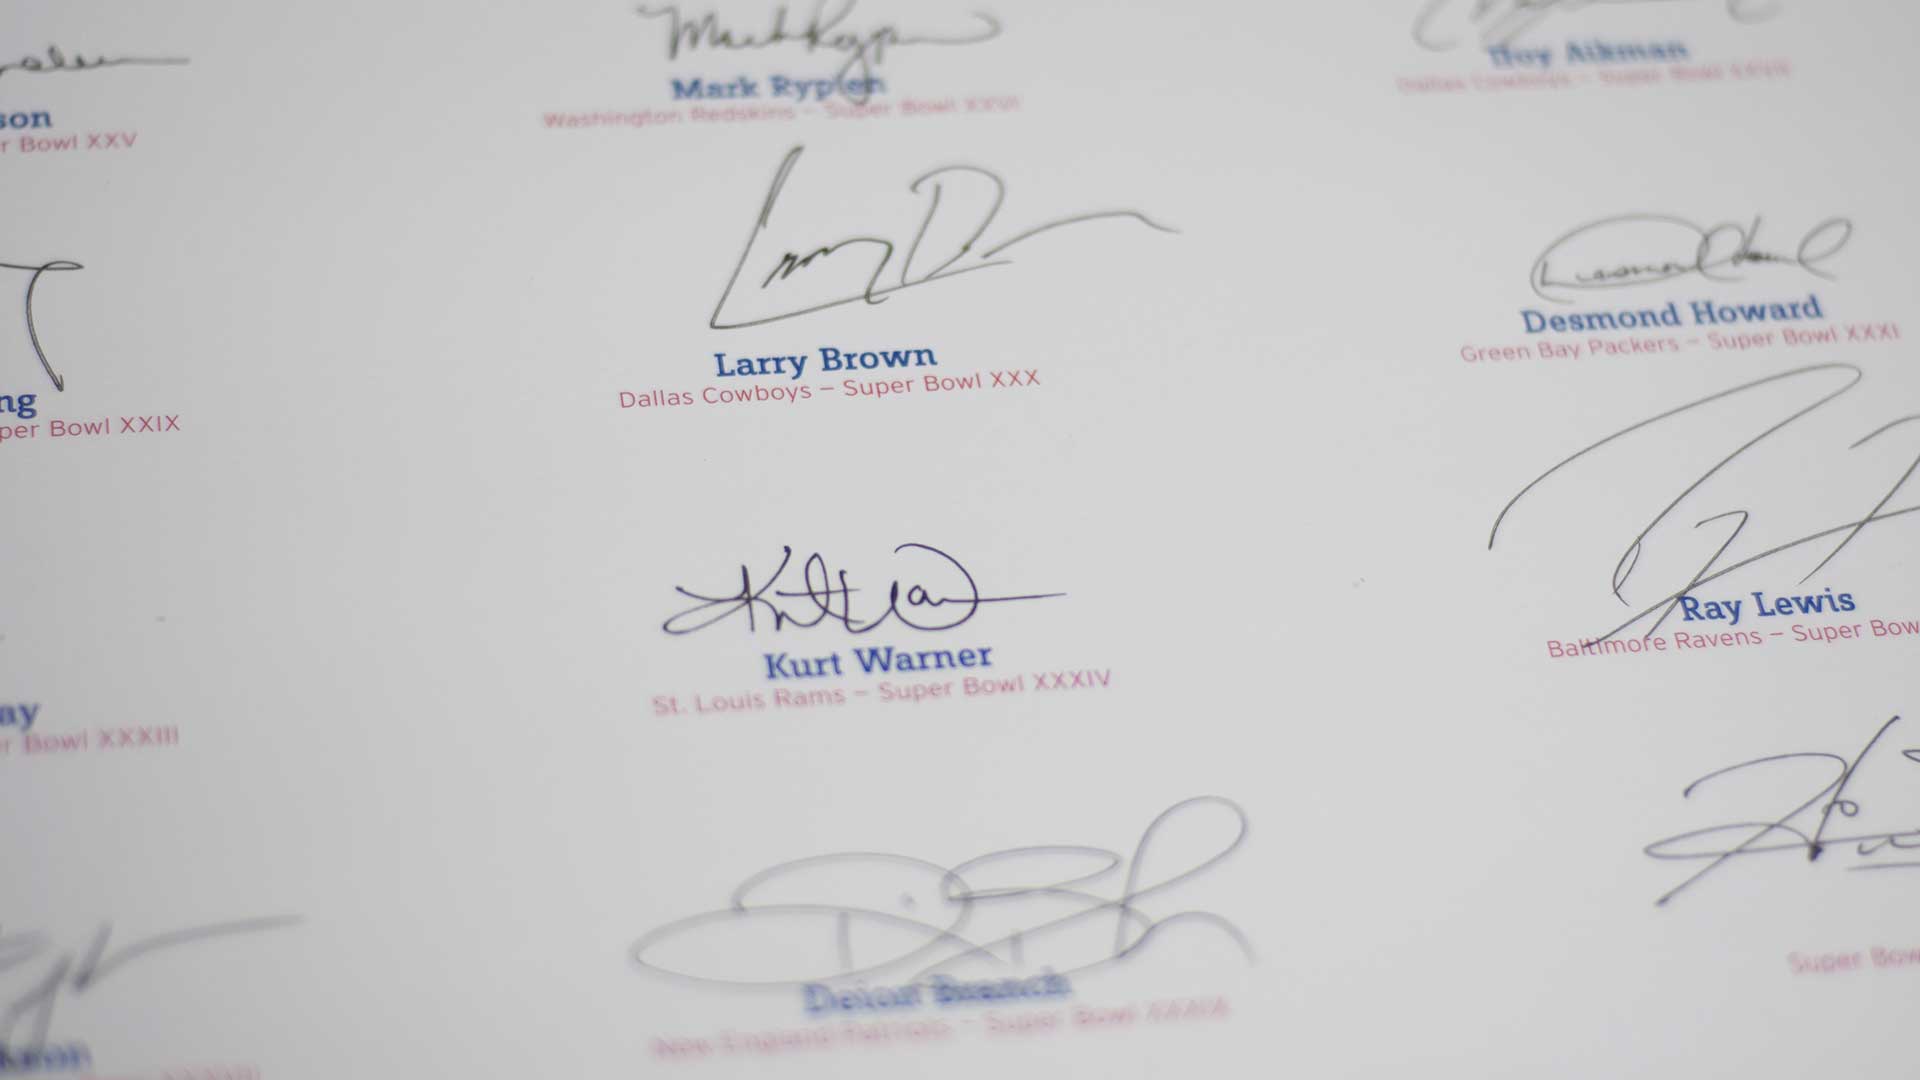 Mark Rypien
Washington Redskins – Super Bowl XXVI
Troy Aikman
Dallas Cowboys – Super Bowl XXVII
son
r Bowl XXV
Larry Brown
Larry Brown
Dallas Cowboys – Super Bowl XXX
Desmond Howard
Desmond Howard
Green Bay Packers – Super Bowl XXXI
ng
per Bowl XXIX
Kurt Warner
Kurt Warner
St. Louis Rams – Super Bowl XXXIV
Ray Lewis
Baltimore Ravens – Super Bow
ay
r Bowl XXXIII
Deion Branch
New England Patriots – Super Bowl XXXIX
Super Bow